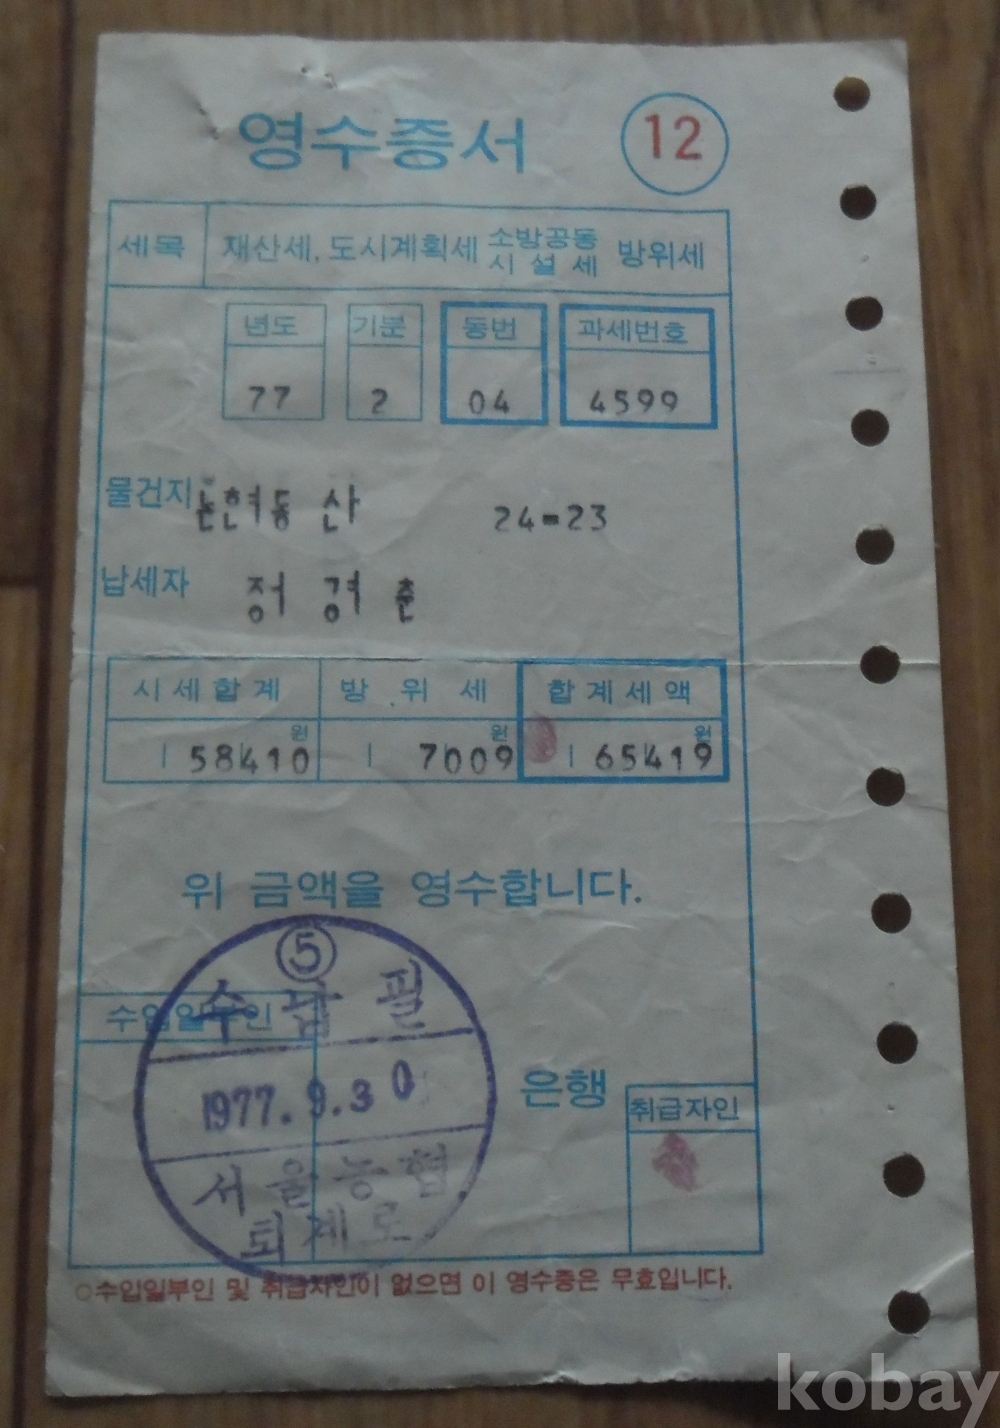 영수증서 12
세목 재산세, 도시계획세 소방공동시설세 방위세
년도 기분 동번 과세번호
77 2 04 4599
물건지 논현동 산 24-23
납세자 정 경 춘
시세합계 방위세 합계세액
58410원 7009원 65419원
위 금액을 영수합니다.
5
수납필
수입일부인
1977.9.30
은행 취급자인
서울농협
퇴계로
○수입일부인 및 취급자인이 없으면 이 영수증은 무효입니다.
kobay